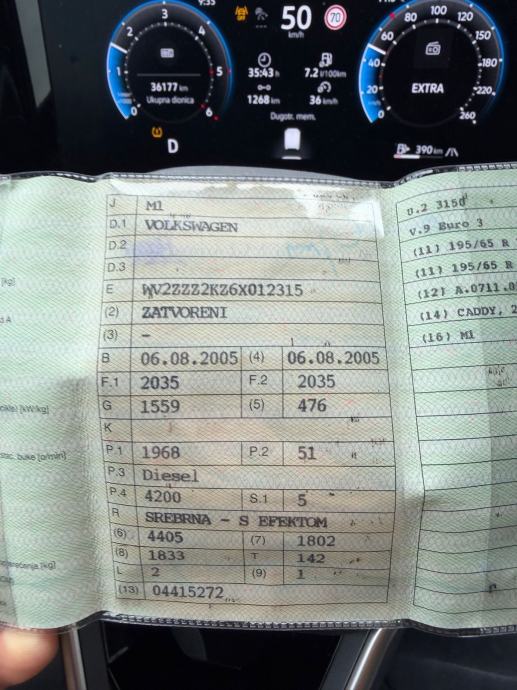 9:35
50
km/h
70
OFF
2
3
4
5
6
1
0
36177 km
Ukupna dionica
D
35:43 h
7.2 l/100km
1268 km
36 km/h
Dugotr. mem.
0
20
40
60
80
100
120
150
180
220
260
EXTRA
390 km
J M1
D.1 VOLKSWAGEN
D.2
D.3
E WV2ZZZ2KZ6X012315
(2) ZATVORENI
(3) -
B 06.08.2005 (4) 06.08.2005
F.1 2035 F.2 2035
G 1559 (5) 476
K
P.1 1968 P.2 51
P.3 Diesel
P.4 4200 S.1 5
R SREBRNA - S EFEKTOM
(6) 4405 (7) 1802
(8) 1833 T 142
L 2 (9) 1
(13) 04415272
U.2 3150
V.9 Euro 3
(11) 195/65 R
(11) 195/65 R
(12) A.0711.0
(14) CADDY, 2
(16) M1
[kg]
[kW/kg]
buke [o/min]
[kg]